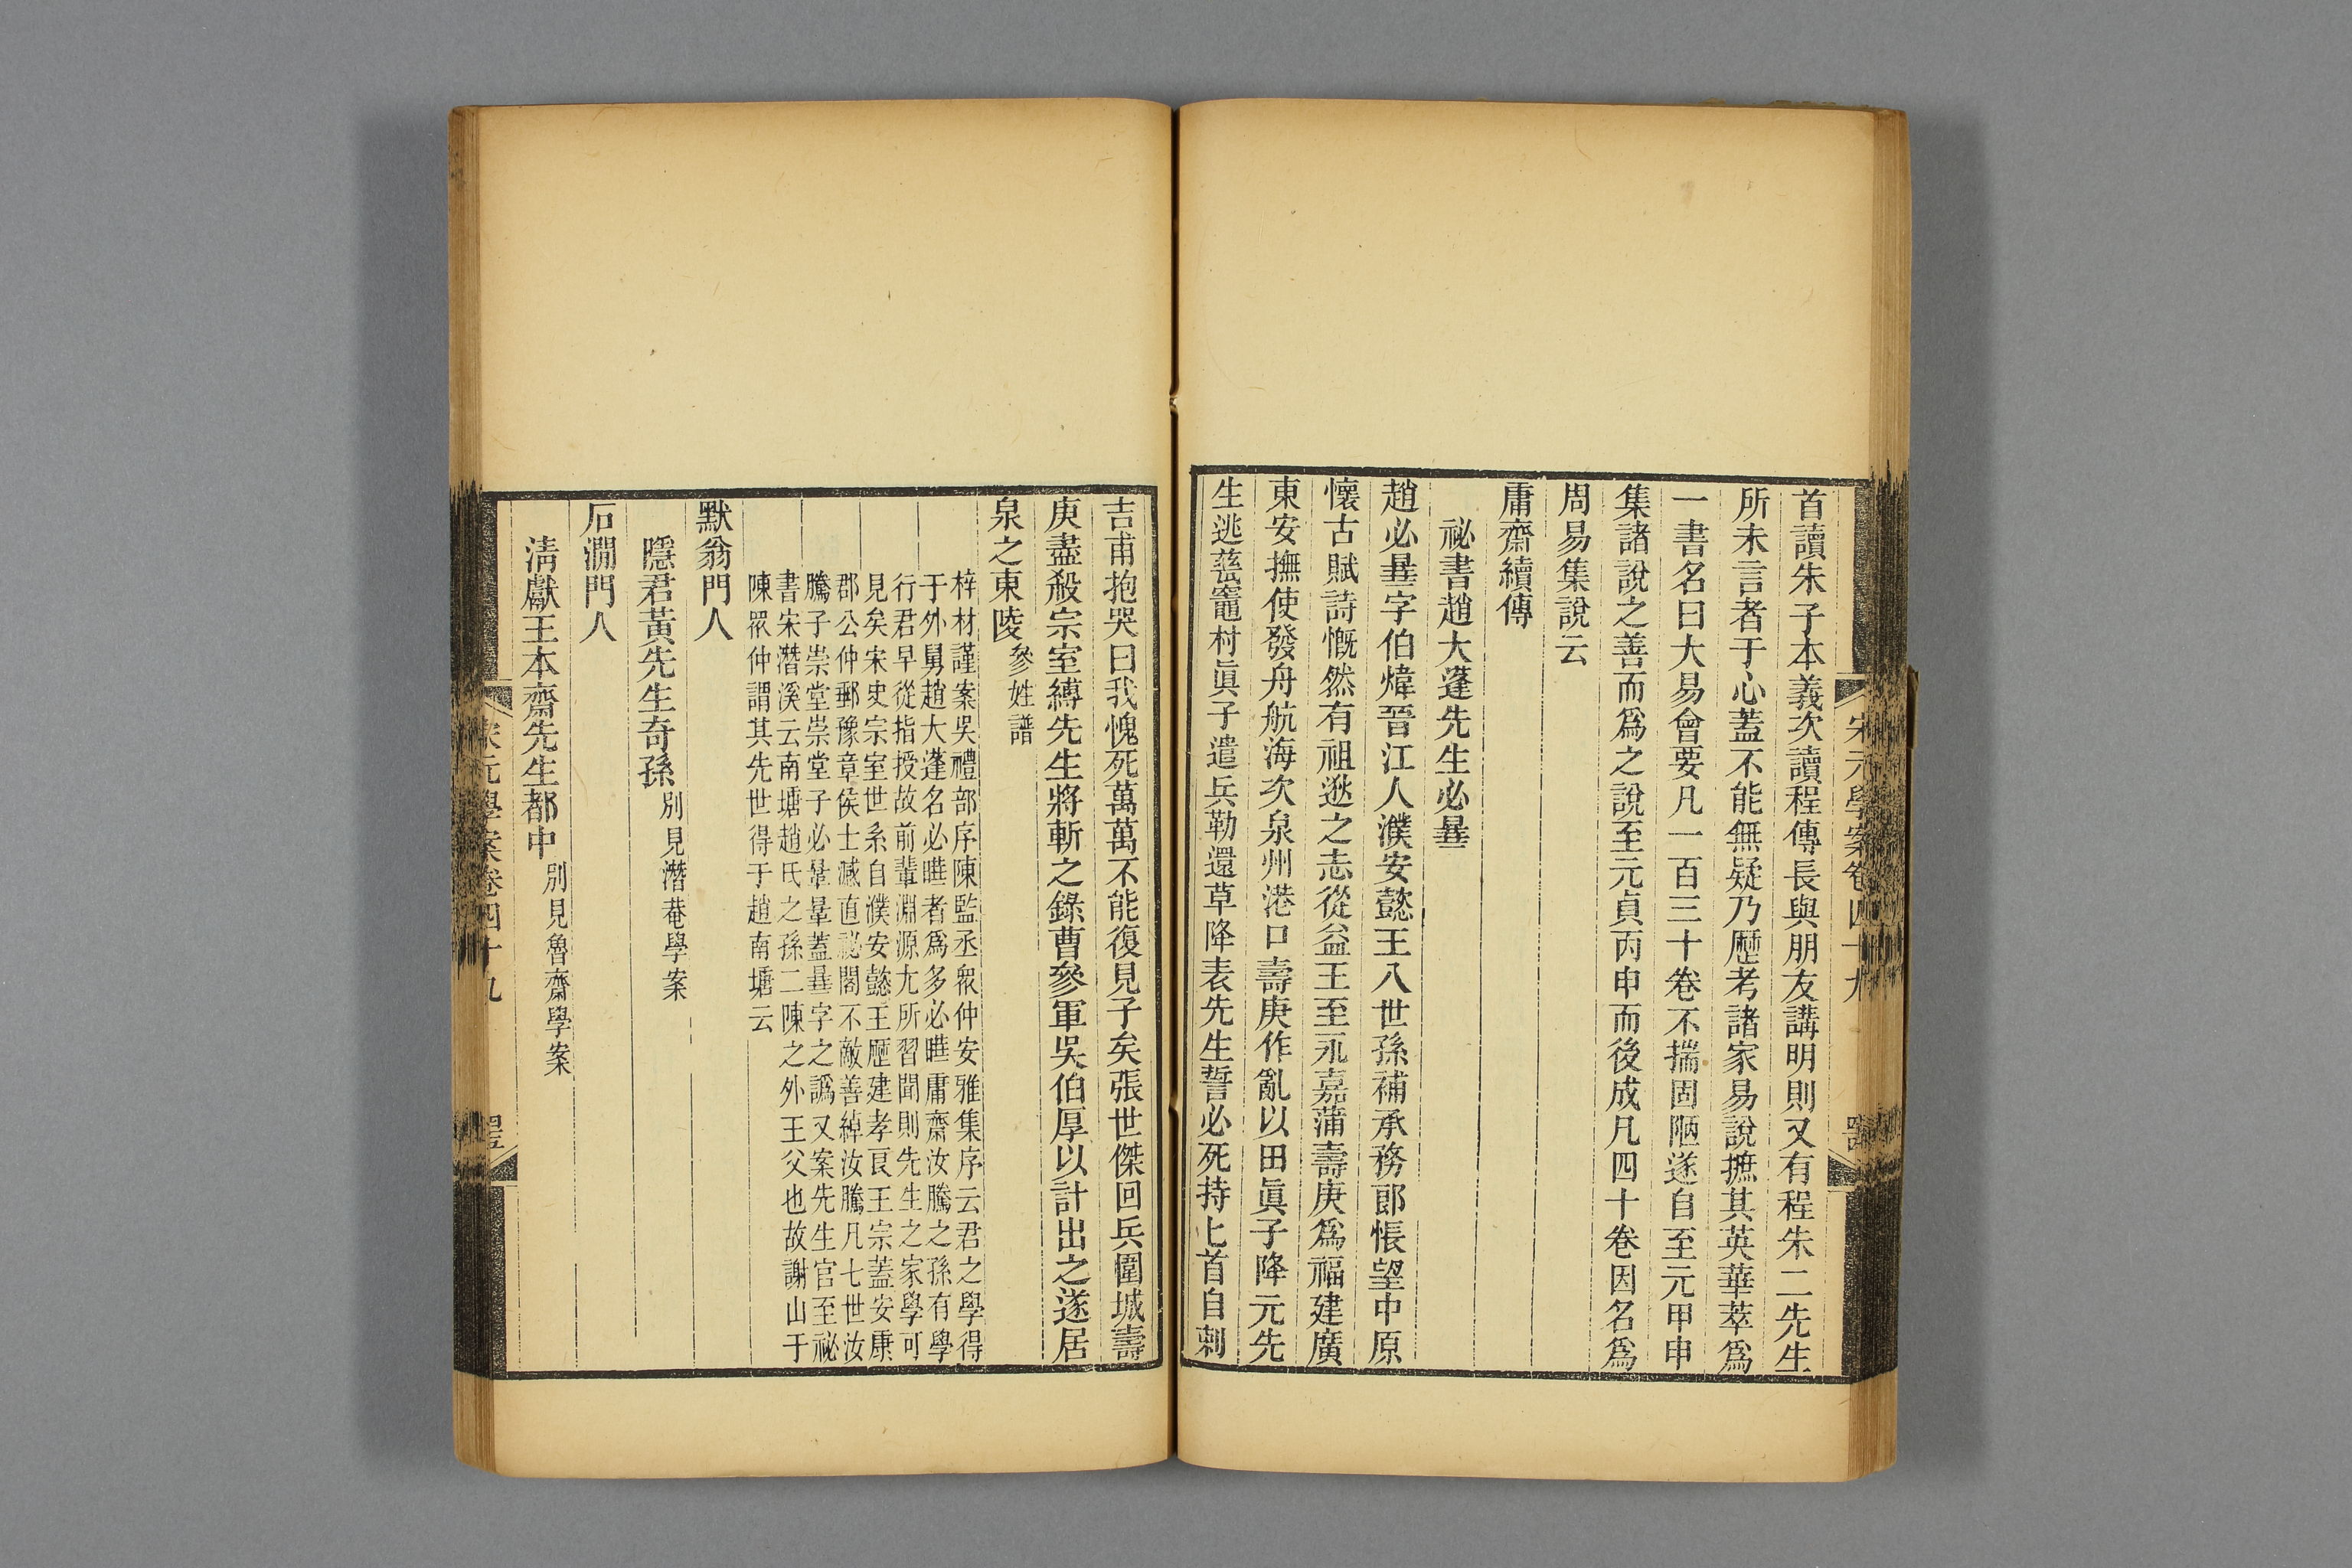 首讀朱子本義次讀程傳長與朋友講明則又有程朱二先生
所未言者于心蓋不能無疑乃歷考諸家易說摭其英華萃爲
一書名曰大易會要凡一百三十卷不揣固陋遂自至元甲申
集諸說之善而爲之說至元貞丙申而後成凡四十卷因名爲
周易集說云
庸齋續傳
祕書趙大蓬先生必曅
趙必曅字伯煒晉江人濮安懿王八世孫補承務郎悵望中原
懷古賦詩慨然有祖逖之志從益王至永嘉蒲壽庚爲福建廣
東安撫使發舟航海次泉州港口壽庚作亂以田眞子降元先
生逃甆竈村眞子遣兵勒還草降表先生誓必死持匕首自刺
吉甫抱哭曰我愧死萬萬不能復見子矣張世傑回兵圍城壽
庚盡殺宗室縛先生將斬之錄曹參軍吳伯厚以計出之遂居
泉之東陵參姓譜
梓材謹案吳禮部序陳監丞衆仲安雅集序云君之學得
于外舅趙大蓬名必曄者爲多必曄庸齋汝騰之孫有學
行君早從指授故前輩淵源尤所習聞則先生之家學可
見矣宋史宗室世系自濮安懿王歷建孝良王宗蓋安康
郡公仲郵豫章侯士𤧬直祕閣不敵善綽汝騰凡七世汝
騰子崇堂崇堂子必曅曅蓋曅字之譌又案先生官至祕
書宋潛溪云南塘趙氏之孫二陳之外王父也故謝山于
陳衆仲謂其先世得于趙南塘云
默翁門人
隱君黃先生奇孫別見潛菴學案
石澗門人
淸獻王本齋先生都中別見魯齋學案
宋元學案卷四十九